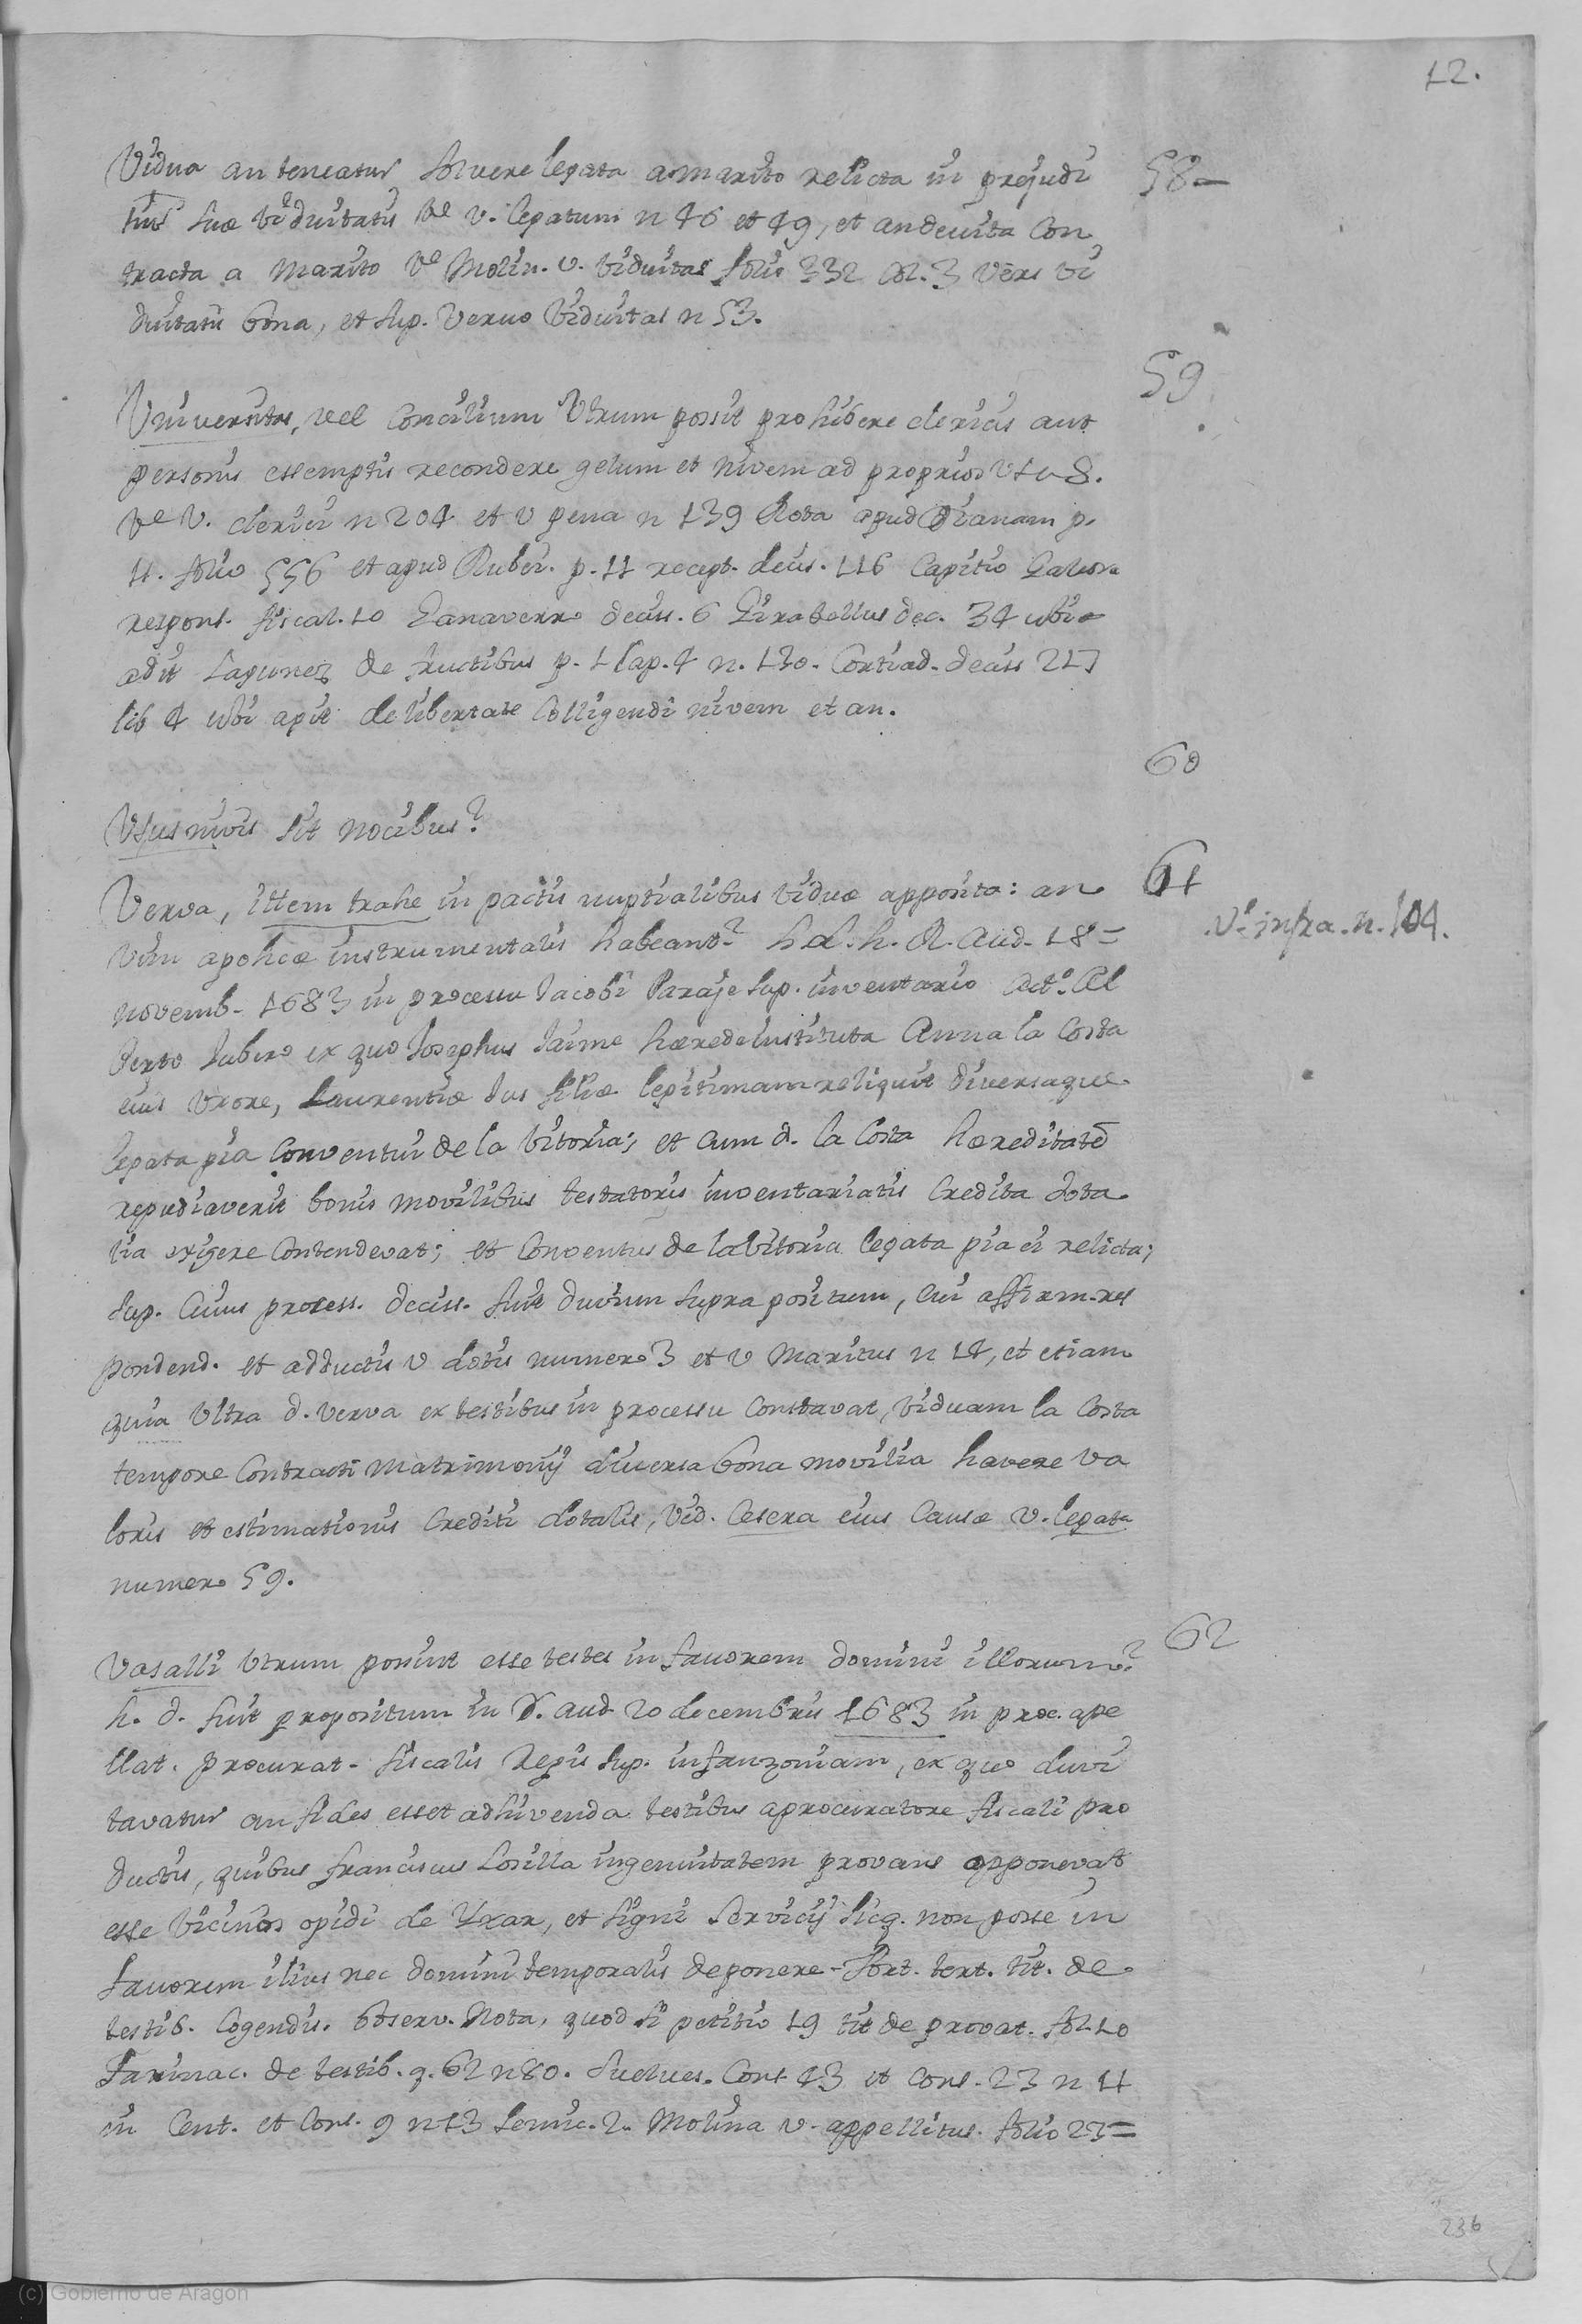 12.
Vidua an teneatur solvere legata a marito relicta in prejudi 58-
tium suæ viduitatis Vᵉ v. legatum n 46 et 49, et an devita Con
tracta a Marito Vᵉ Molin. v. viduitas folio 332 Col. 3 vers vi
duitatis bona, et sup. Vervo Viduitas n 53.
59
Universitas, vel Concilium Utrum possit prohibere clericis aut
personis essemptis recondere gelum et nivem ad proprios usus.
Vᵉ V. clerici n 204 et v pena n 139 Rota apud Dianam p.
11. folio 556 et apud Ruber. p. 11 recept. decis. 116 Capitio
respons. fiscal. 10 decis. 6 Mirabellus dec. 34 ubi
adit Lagunez de fructibus p. 1 Cap. 4 n. 130. Cortiad. deciss 217
lib 4 ubi agit de libertate Colligendi nivem et an.
60
Usus nivis sit nocibus?
Verva, ittem trahe in pactis nuptialibus viduæ apposita: an 61
vim apohcæ instrumentalis habeant? h. d. h. R. Aud. 18= .vᵉ infra. n. 104.
novemb. 1683 in processu Jacobi Paraje sup. inventario Actᵒ. Al
berto Jubero ex quo Josephus Jaime hærede instituta Anna la Costa
eius uxore, Laurentiæ Jus filiæ legitimam reliquit diversaque
legata pia Conventui de la Vitoria; et cum d. la Costa hæreditatē
repudiaverit bonis movilibus testatoris inventariatis Credita dota
lia exigere Contendevat; et Conventus de la Vitoria legata pia ei relicta;
sup. Cuius process. deciss. fuit duvium supra positum, Cui affirm. res
pondend. et adductis v dotis numero 3 et v Maritus n 14, et etiam
quia ultra d. verva ex testibus in processu Constavat, viduam la Costa
tempore Contracti Matrimonij diversa bona movilia havere va
loris et estimationis Crediti dotalis, Vid. Cetera eius Causæ v. legata
numero 59.
62
Vasalli Utrum possint esse testes in favorem domini illorum?
h. d. fuit propositum in R. aud 20 decembris 1683 in proc. ape
llat. procurat. fiscalis Regis sup. infanzoniam, ex quo duvi
tavatur an fides esset adhivenda testibus a procuratore fiscali pro
ductis, quibus franciscus Losilla ingenuitatem provans opponevat
esse vicinos opidi de Yxar, et signi Servicij sicq. non posse in
favorem illius nec domini temporalis deponere. Port. text. tit. de
testib. Cogendis. Observ. Nota, quod si petitio 19 tit de provat. fol 10
Farinac. de testib. q. 62 n 80. Suelves. Cons 43 et Cons. 23 n 11
in Cent. et Cons. 9 n 13 Semic. 2. Molina v. appellitus. folio 23=
236
(c) Gobierno de Aragón